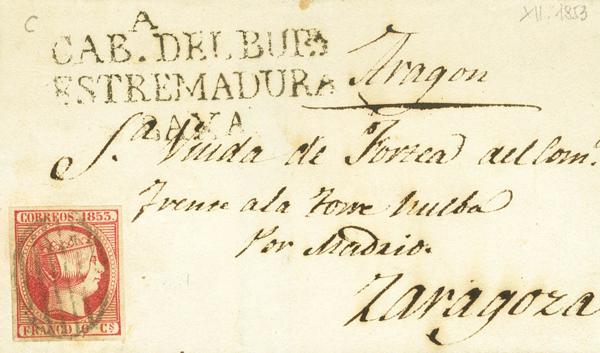 C
XII. 1853
A
CAB. DEL BUEY
ESTREMADURA
BAXA
Aragon
S.ª Viuda de Forcea del Com.º
Frente a la Torre Nueba
Por Madrid.
Zaragoza
CORREOS. 1853.
FRANCO. 6 Cs